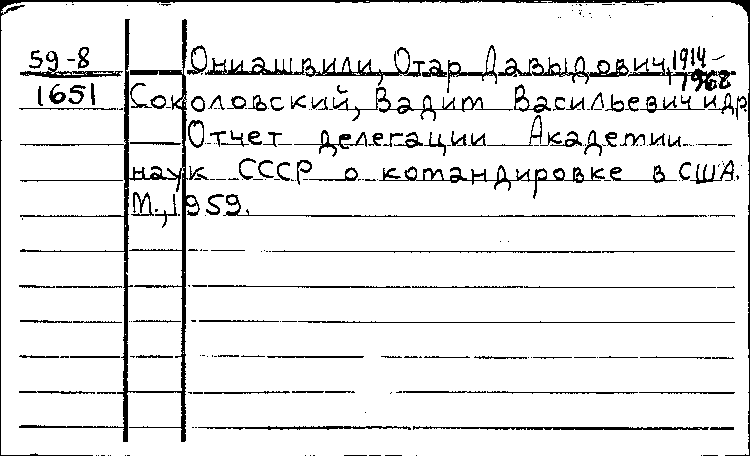 59-8 Ониашвили, Отар Давыдович, 1914-
1968
1651 Соколовский, Вадим Васильевич и др.
Отчет делегации Академии
наук СССР о командировке в США.
М., 1959.